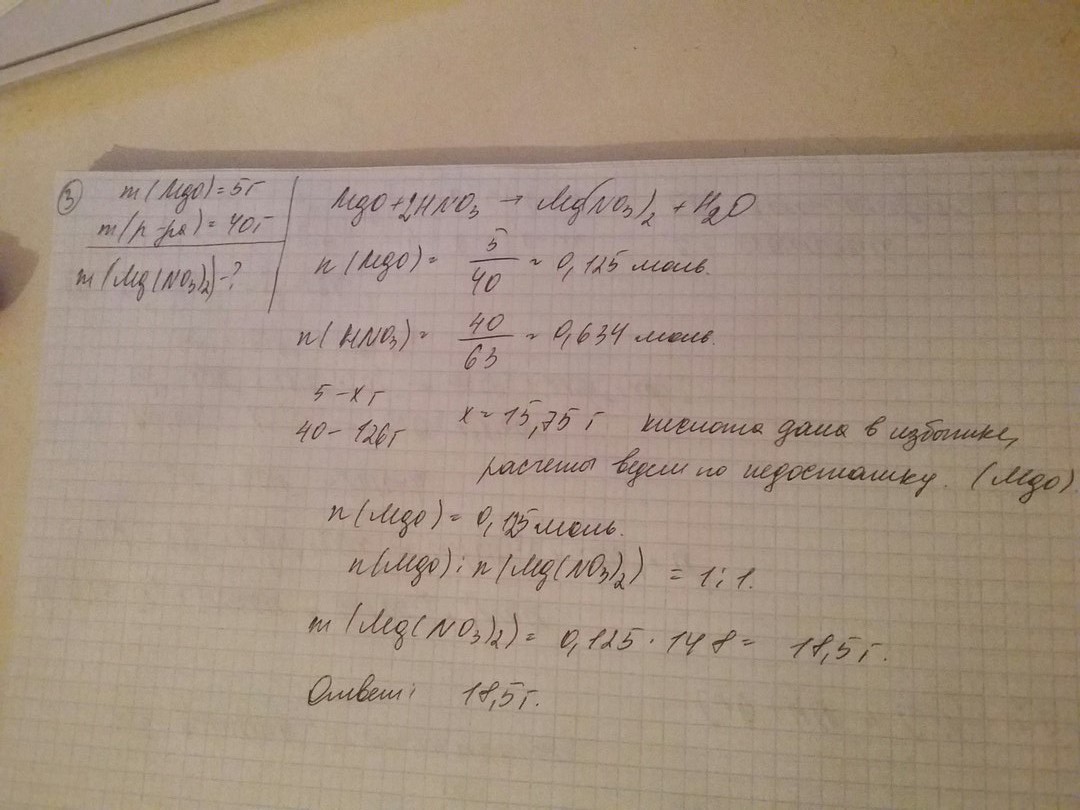 ③ m(MgO)=5г
m(р-ра)=40г
m(Mg(NO3)2)-?
MgO+2HNO3 → Mg(NO3)2 + H2O
n(MgO) = 5/40 = 0,125 моль.
n(HNO3) = 40/63 = 0,634 моль.
5 – x г
40 – 126 г
x = 15,75 г кислота дана в избытке,
расчеты ведем по недостатку. (MgO).
n(MgO) = 0,125 моль.
n(MgO) : n(Mg(NO3)2) = 1:1.
m(Mg(NO3)2) = 0,125 · 148 = 18,5 г.
Ответ: 18,5 г.